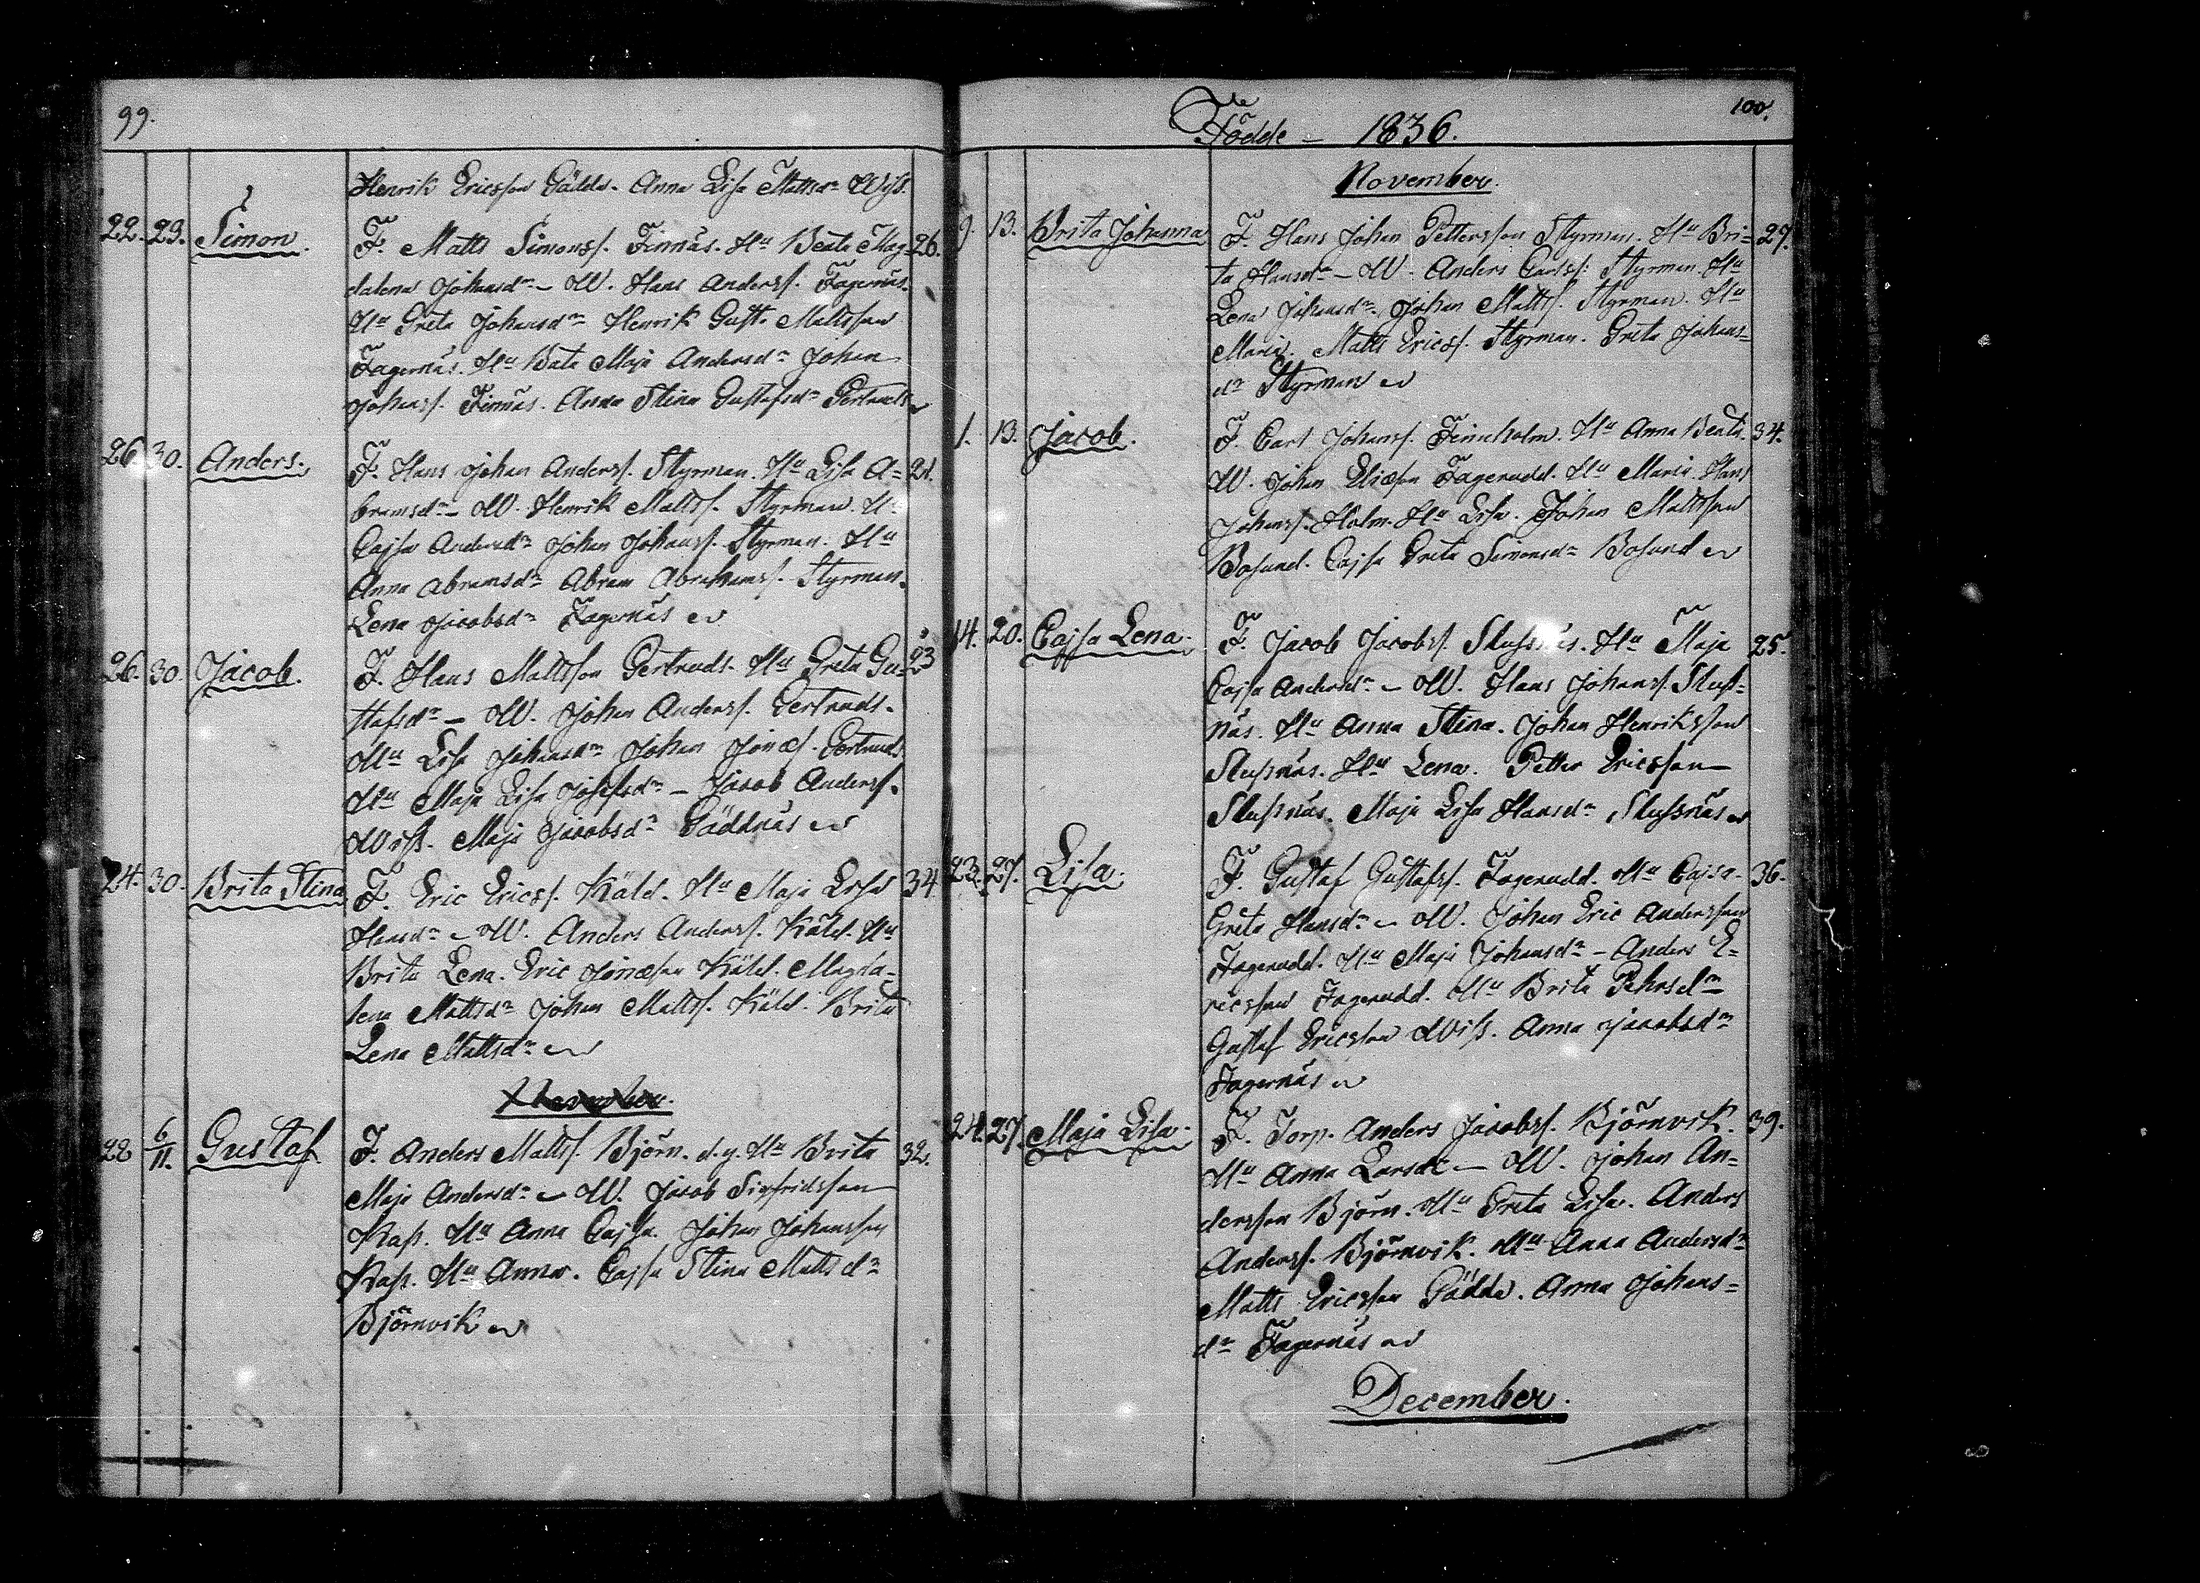 99.
Henrik Ericsson Gädda. Anna Lisa Mattsdr Wiss.
22. 23. Simon. F. Matts Simonss. Finnäs. Hu Beata Mag= 26.
dalena Johansdr – W. Hans Anderss. Fagernäs.
Hu Greta Johansdr Henrik Gust. Mattsson
Fagernäs. Hu Beata Maja Andersdr Johan
Johanss. Finnäs. Anna Stina Gustafsdr Gertruds
26. 30. Anders. F. Hans Johan Anderss. Styrman. Hu Lisa A= 21.
bramsdr – W. Henrik Mattss. Styrman. Hu
Cajsa Andersdr Johan Johanss. Styrman. Hu
Anna Abramsdr Abram Abrahamss. Styrman.
Lena Jacobsdr Fagernäs
26. 30. Jacob. F. Hans Mattsson Gertruds. Hu Greta Gu= 23
stafsdr – W. Johan Anderss. Gertruds.
Hu Lisa Johansdr Johan Jonæs. Gertruds
Hu Maja Lisa Josefsdr – Jacob Anderss.
Wiss. Maja Jacobsdr Gäddnäs
24. 30. Brita Stina F. Eric Ericss. Käld. Hu Maja Lisa 34
Hansdr – W. Anders Anderss. Käld. Hu
Brita Lena. Eric Jonæson Käld. Magda=
lena Mattsdr Johan Mattss. Käld. Brita
Lena Mattsdr
November.
28 6/11. Gustaf F. Anders Mattss. Björn. d.y. Hu Brita 32.
Maja Andersdr – W. Jacob Sigfridsson
Kass. Hu Anna Cajsa. Johan Johansson
Kass. Hu Anna. Cajsa Stina Mattsdr
Björnvik
100.
Födde – 1836.
November.
9. 13. Brita Johanna F. Hans Johan Pettersson Styrman. Hu Bri= 27.
ta Hansdr – W. Anders Carlss. Styrman. Hu
Lena Johansdr. Johan Mattss. Styrman. Hu
Maria. Matts Ericss. Styrman. Greta Johans=
dr Styrman
1. 13. Jacob. F. Carl Johanss. Finnholm. Hu Anna Beata. 34.
W. Johan Eliæson Fagerudd. Hu Maria. Hans
Johanss. Holm. Hu Lisa. Johan Mattsson
Bosund. Cajsa Greta Simonsdr Bosund
14. 20. Cajsa Lena. F. Jacob Jacobss. Slussnäs. Hu Maja 25.
Cajsa Andersdr – W. Hans Johanss. Sluss=
näs. Hu Anna Stina. Johan Henriksson
Slussnäs. Hu Lena. Petter Ericsson
Slussnäs. Maja Lisa Hansdr Slussnäs
23. 27. Lisa. F. Gustaf Gustafss. Fagerudd. Hu Cajsa 36.
Greta Hansdr – W. Johan Eric Andersson
Fagerudd. Hu Maja Johansdr – Anders E=
ricsson Fagerudd. Hu Brita Pehrsdr
Gustaf Ericsson Wiss. Anna Jacobsdr
Fagernäs
24. 27. Maja Lisa. F. Torp. Anders Jacobss. Björnvik. 39.
Hu Anna Larsdr – W. Johan An=
dersson Björn. Hu Greta Lisa. Anders
Anderss. Björnvik. Hu Anna Andersdr
Matts Ericsson Gädda. Anna Johans=
dr Fagernäs
December.